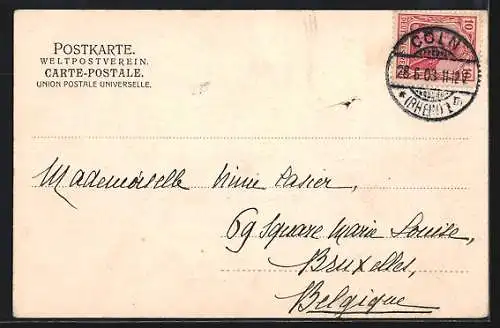 POSTKARTE.
WELTPOSTVEREIN.
CARTE-POSTALE.
UNION POSTALE UNIVERSELLE.
10
CÖLN
28.5.03.11-12V
* (RHEIN) 1
Mademoiselle
69 Square Marie Louise,
Bruxelles,
Belgique